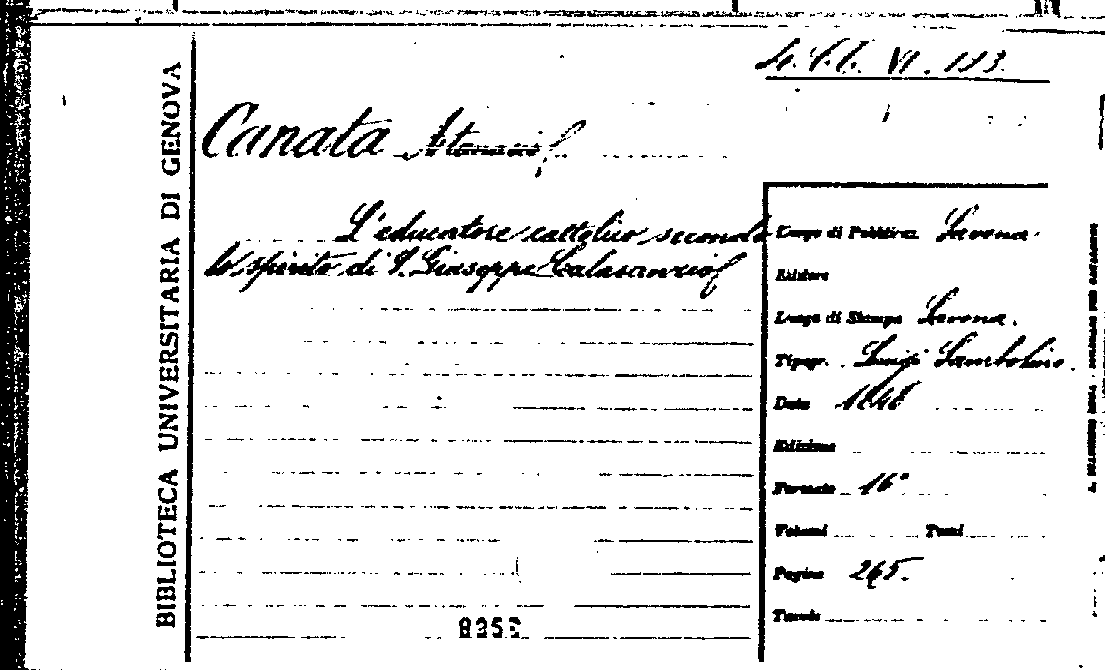 BIBLIOTECA UNIVERSITARIA DI GENOVA
VI. 113.
Canata Atanasio
L'educatore cattolico secondo
lo spirito di S. Giuseppe Calasanzio
Luogo di Pubblicaz. Savona.
Editore
Luogo di Stampa Savona.
Tipogr. Luigi Sambolino.
Data 1848
Edizione
Formato 16°
Volumi Tomi
Pagine 265.
Tavole